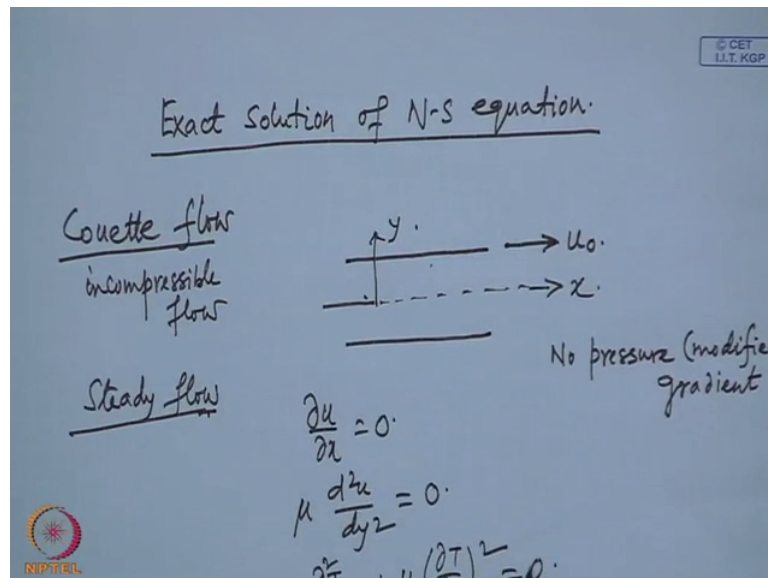 © CET
I.I.T. KGP
Exact Solution of N-S equation.
Couette flow
incompressible
flow
y.
u₀.
x.
No pressure (modifie
gradient
Steady flow
∂u/∂x = 0.
μ d²u/dy² = 0.
μ(∂T )² = 0.
NPTEL